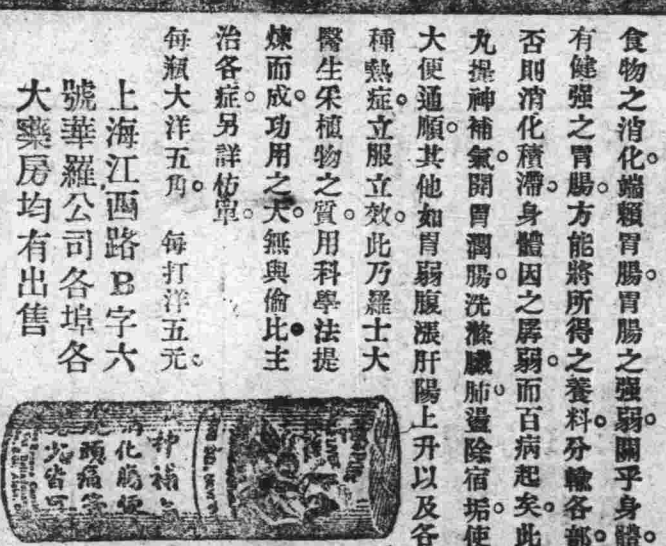 食物之消化。端賴胃腸。胃腸之强弱。關乎身體。
有健强之胃腸。方能將所得之養料。分輸各部。
否則消化積滯。身體因之孱弱。而百病起矣。此
丸提神補氣。開胃潤腸。洗滌臟肺。盪除宿垢。使
大便通順。其他如胃弱腹漲肝陽上升以及各
種熱症。立服立效。此乃羅士大
醫生采植物之質。用科學法提
煉而成。功用之大。無與倫比。主
治各症。另詳仿單。
每瓶大洋五角。 每打洋五元。
上海江西路B字六
號華羅公司各埠各
大藥房均有出售
神補
消化腸便
頭痛